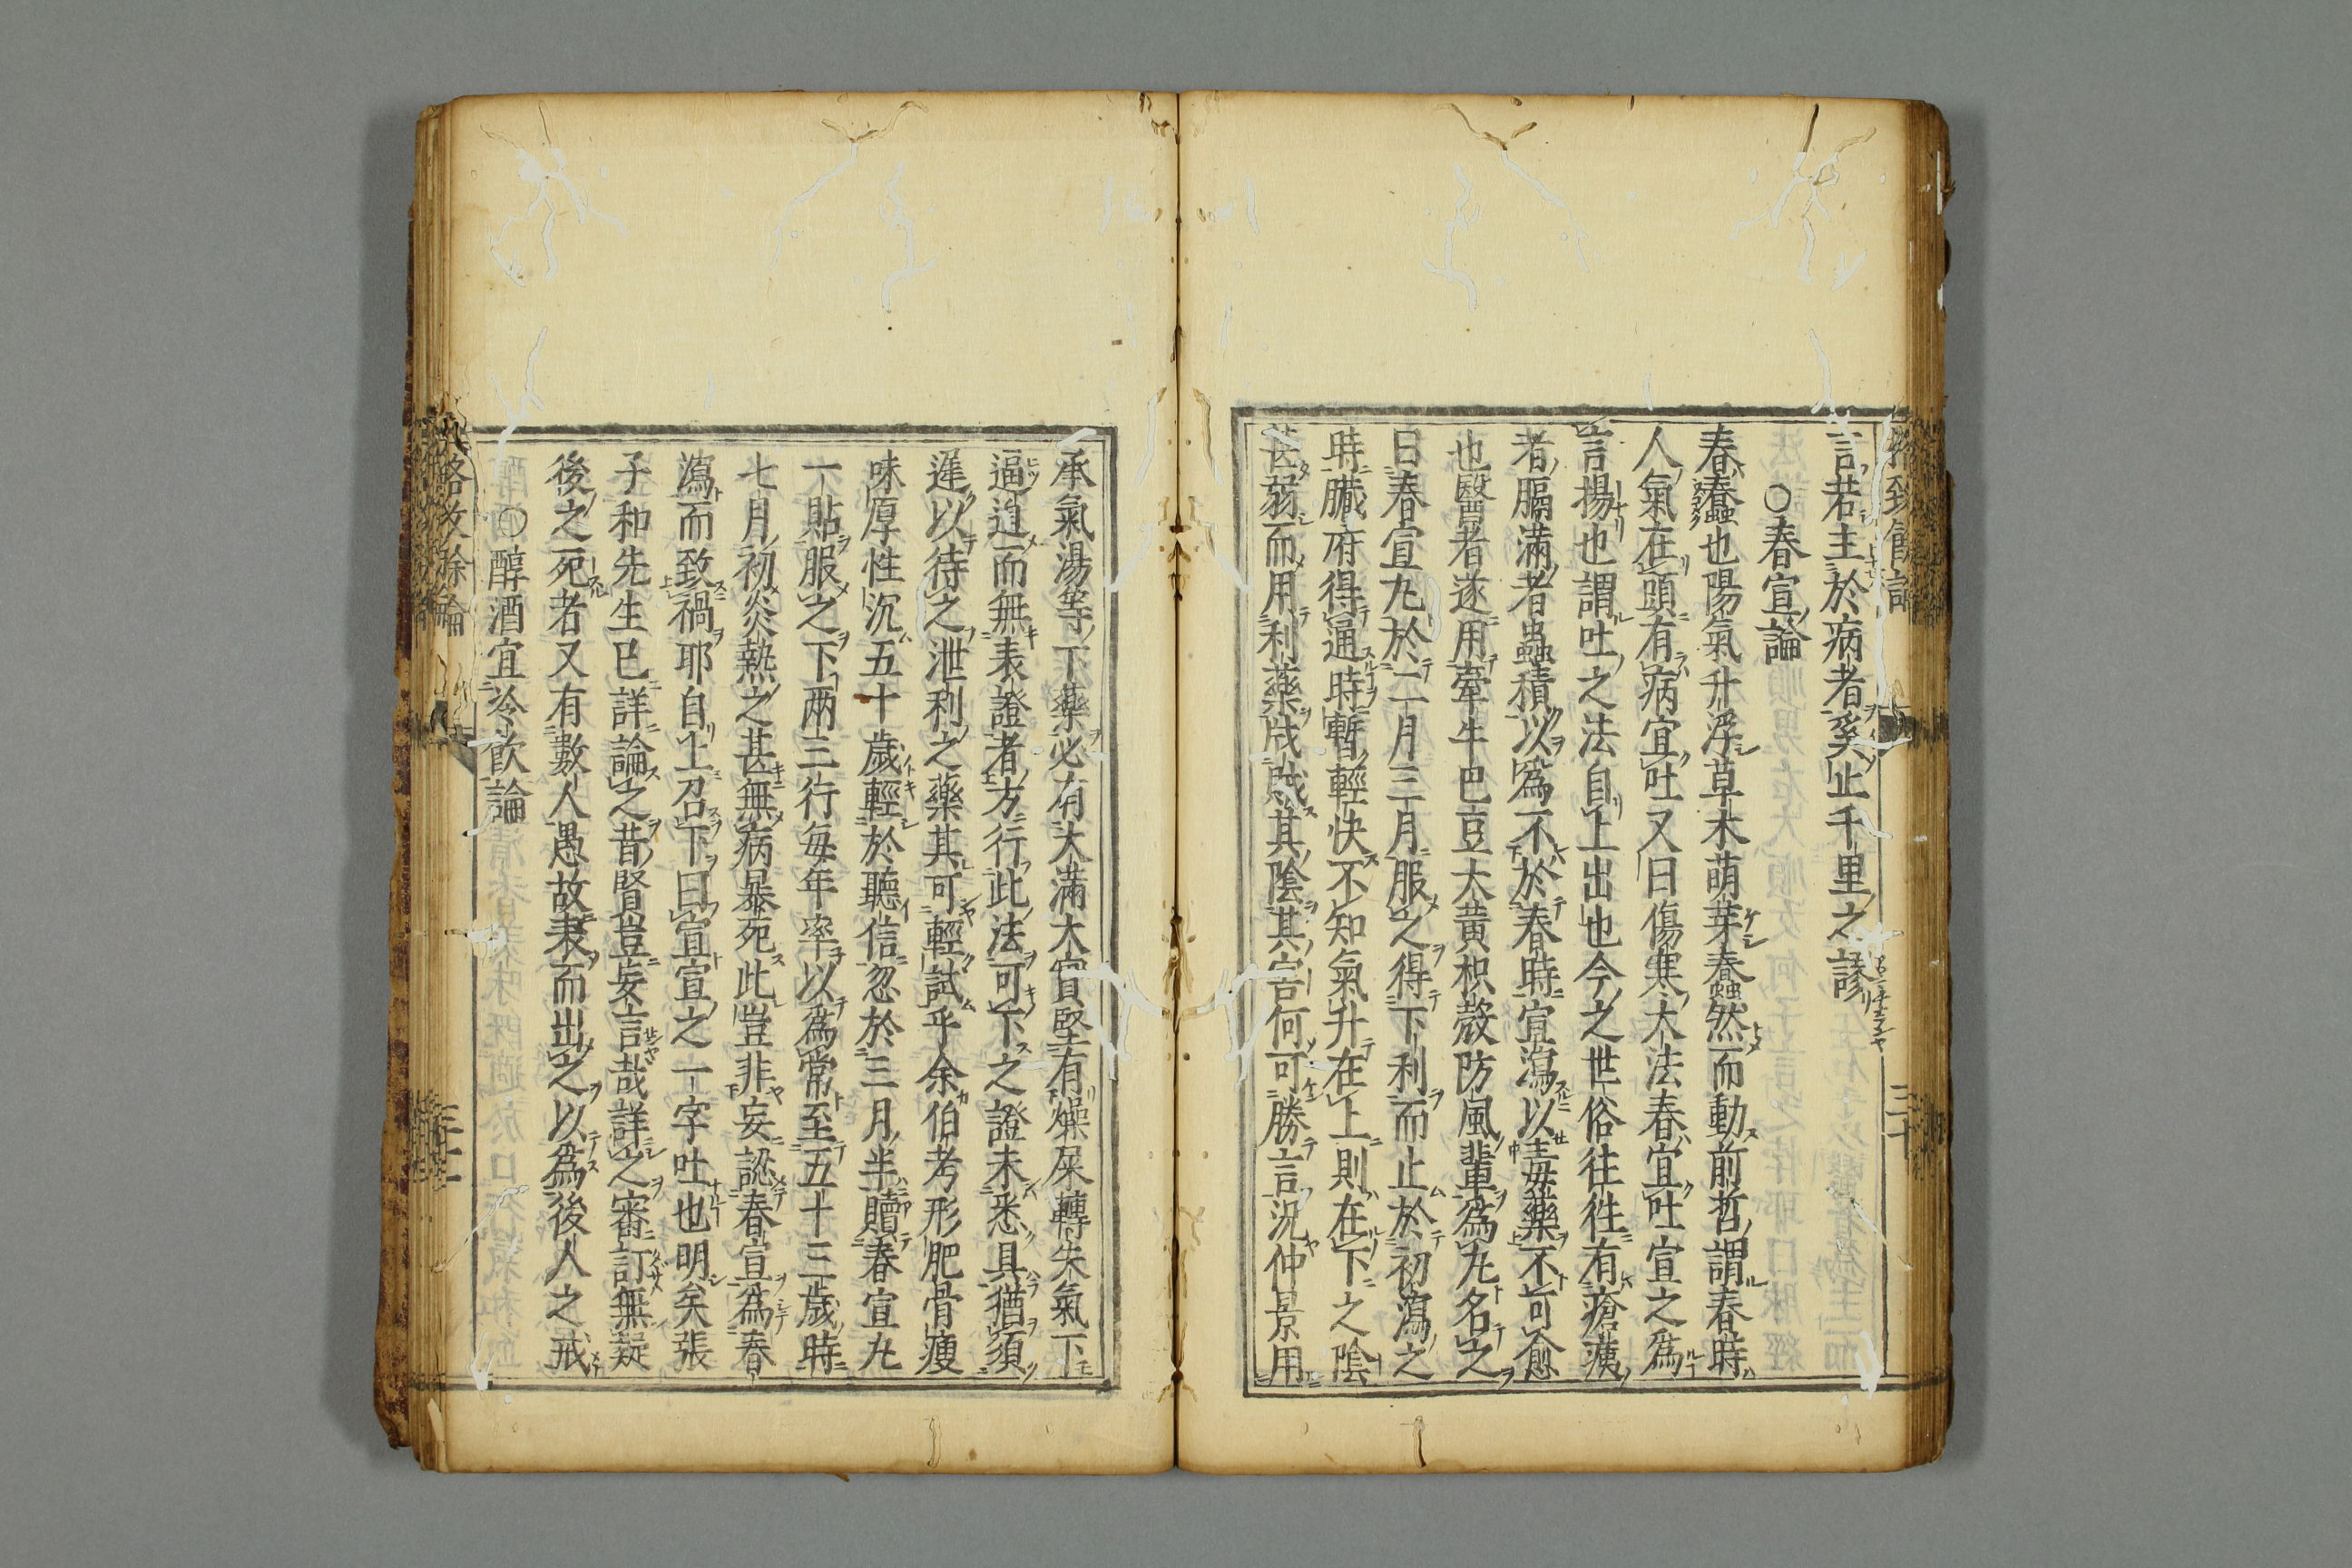 言若主於病者奚止千里之謬
○春宣論
春蠢也陽氣升浮草木萌芽蠢然而動前哲謂春時
人氣在頭有病宜吐又曰傷寒大法春宜吐宣之爲
言揚也謂吐之法自上出也今之世俗往往有瘡痍
者膈滿者蟲積以爲不於春時宣瀉以毒藥不可愈
也醫者遂用牽牛巴豆大黄枳殻防風輩爲丸名之
曰春宣丸於二月三月服之得下利而止於初瀉之
時臟府得通時暫輕快不知氣升在上則在下之陰
甚弱而用利藥戕賊其陰其害何可勝言況仲景用
承氣湯等下藥必有大滿大實堅有燥屎轉失氣下
逼迫而無表證者方行此法可下之證未悉具猶須
遲以待之泄利之藥其可輕試乎余伯考形肥骨瘦
味厚性沉五十歲輕於聽信忽於三月半贖春宣丸
一貼服之下兩三行每年率以爲常至五十三歲時
七月初炎熱之甚無病暴死此豈非妄認春宣爲春
瀉而致禍耶自上召下曰宣宣之一字吐也明矣張
子和先生已詳論之昔賢豈妄言哉詳之審訂無疑
後之死者又有數人愚故表而出之以爲後人之戒
○醇酒宜冷飲論